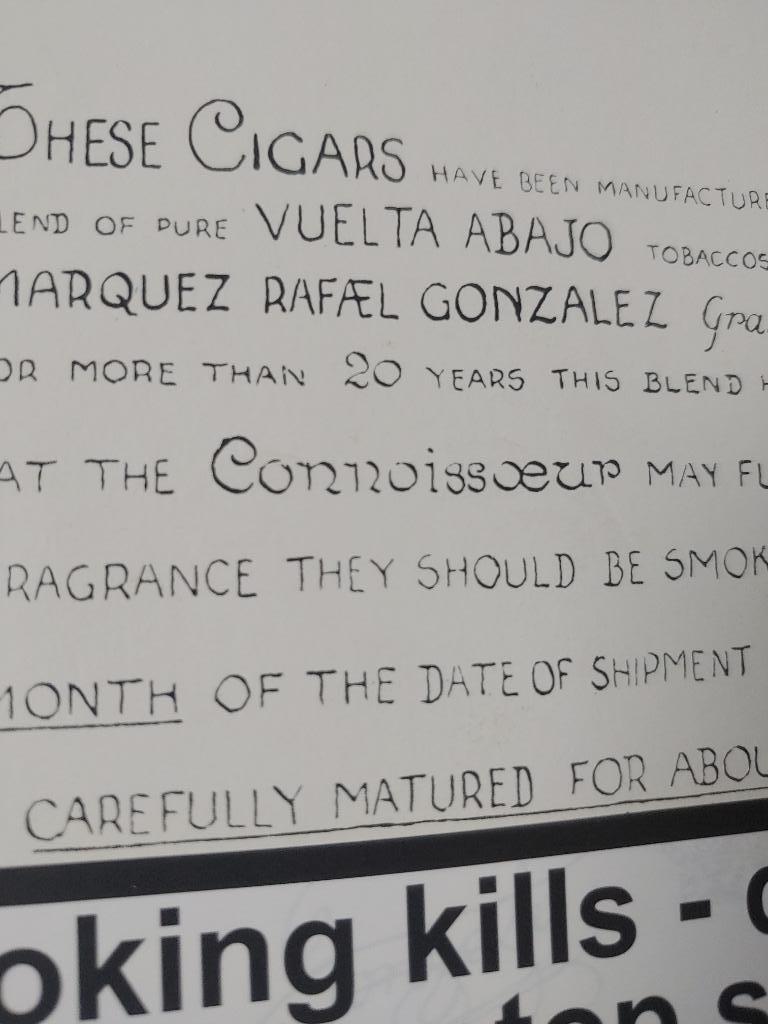 THESE CIGARS HAVE BEEN MANUFACTURE
LEND OF PURE VUELTA ABAJO TOBACCOS
MARQUEZ RAFÆL GONZALEZ Gra
OR MORE THAN 20 YEARS THIS BLEND H
AT THE Connoissœur MAY FU
RAGRANCE THEY SHOULD BE SMOK
MONTH OF THE DATE OF SHIPMENT
CAREFULLY MATURED FOR ABOU
oking kills -
top s